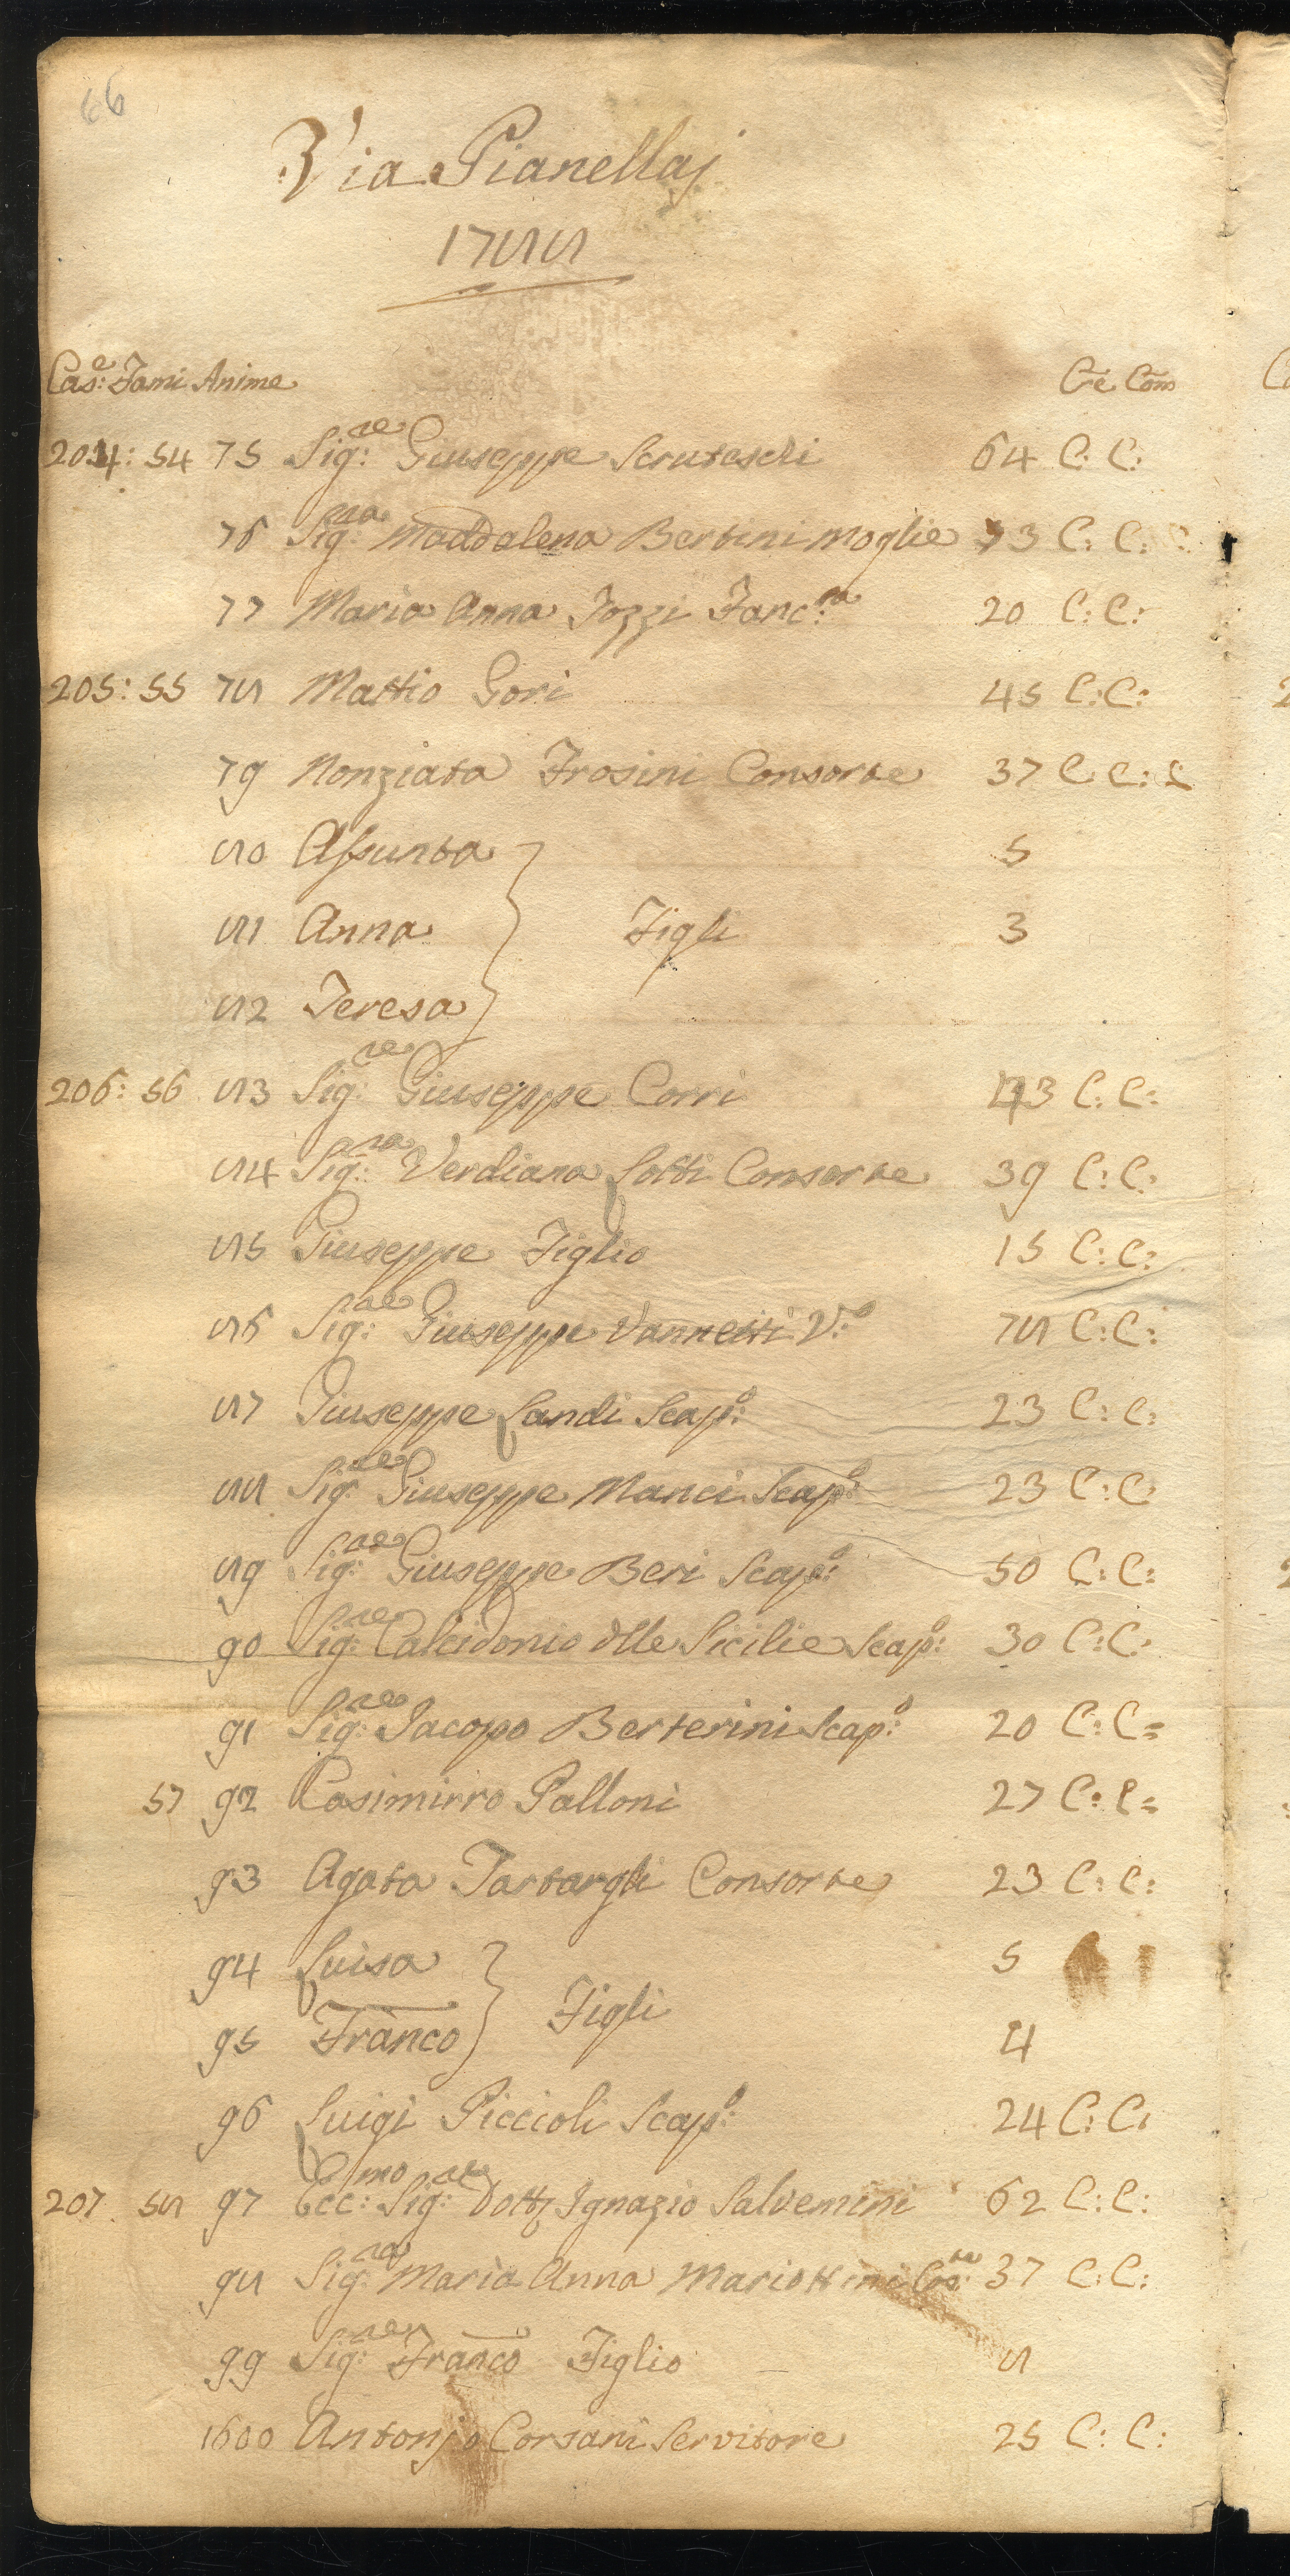 66
Via Pianellaj
1788
Cas:e Fami Anime Cre Com
204: 54 75 Sig:re Giuseppe Scruteschi 64 C: C:
76 Sig:ra Maddalena Bertini moglie 73 C: C:
77 Maria Anna Jozzi Fanc:la 20 C: C:
205: 55 78 Mattio Gori 45 C: C:
79 Nonziata Frosini Consorte 37 C C: C
80 Assunta 5
81 Anna Figli 3
82 Teresa
206: 56 83 Sig:re Giuseppe Corri 43 C: C:
84 Sig:ra Verdiana Lotti Consorte 39 C: C:
85 Giuseppe Figlio 15 C: C:
86 Sig:re Giuseppe Vannetti V:o 78 C: C:
87 Giuseppe Landi Scap:o 23 C: C:
88 Sig:re Giuseppe Manci Scap:o 23 C: C:
89 Sig:re Giuseppe Beri Scap:o 50 C: C:
90 Sig:re Calcidonio dlle Sicilie Scap:o 30 C: C:
91 Sig:re Jacopo Berterini Scap:o 20 C: C=
57 92 Casimirro Palloni 27 C: C=
93 Agata Tartargli Consorte 23 C: C:
94 Luisa 5
Figli
95 Franco 4
96 Luigi Piccioli Scap:o 24 C: C:
207 58 97 Ecc:mo Sig:re Dott Ignazio Salvemini 62 C: C:
98 Sig:ra Maria Anna Mariottini Cos:te 37 C: C:
99 Sig:re Franco Figlio 8
1600 Antonjo Corsani Servitore 25 C: C: